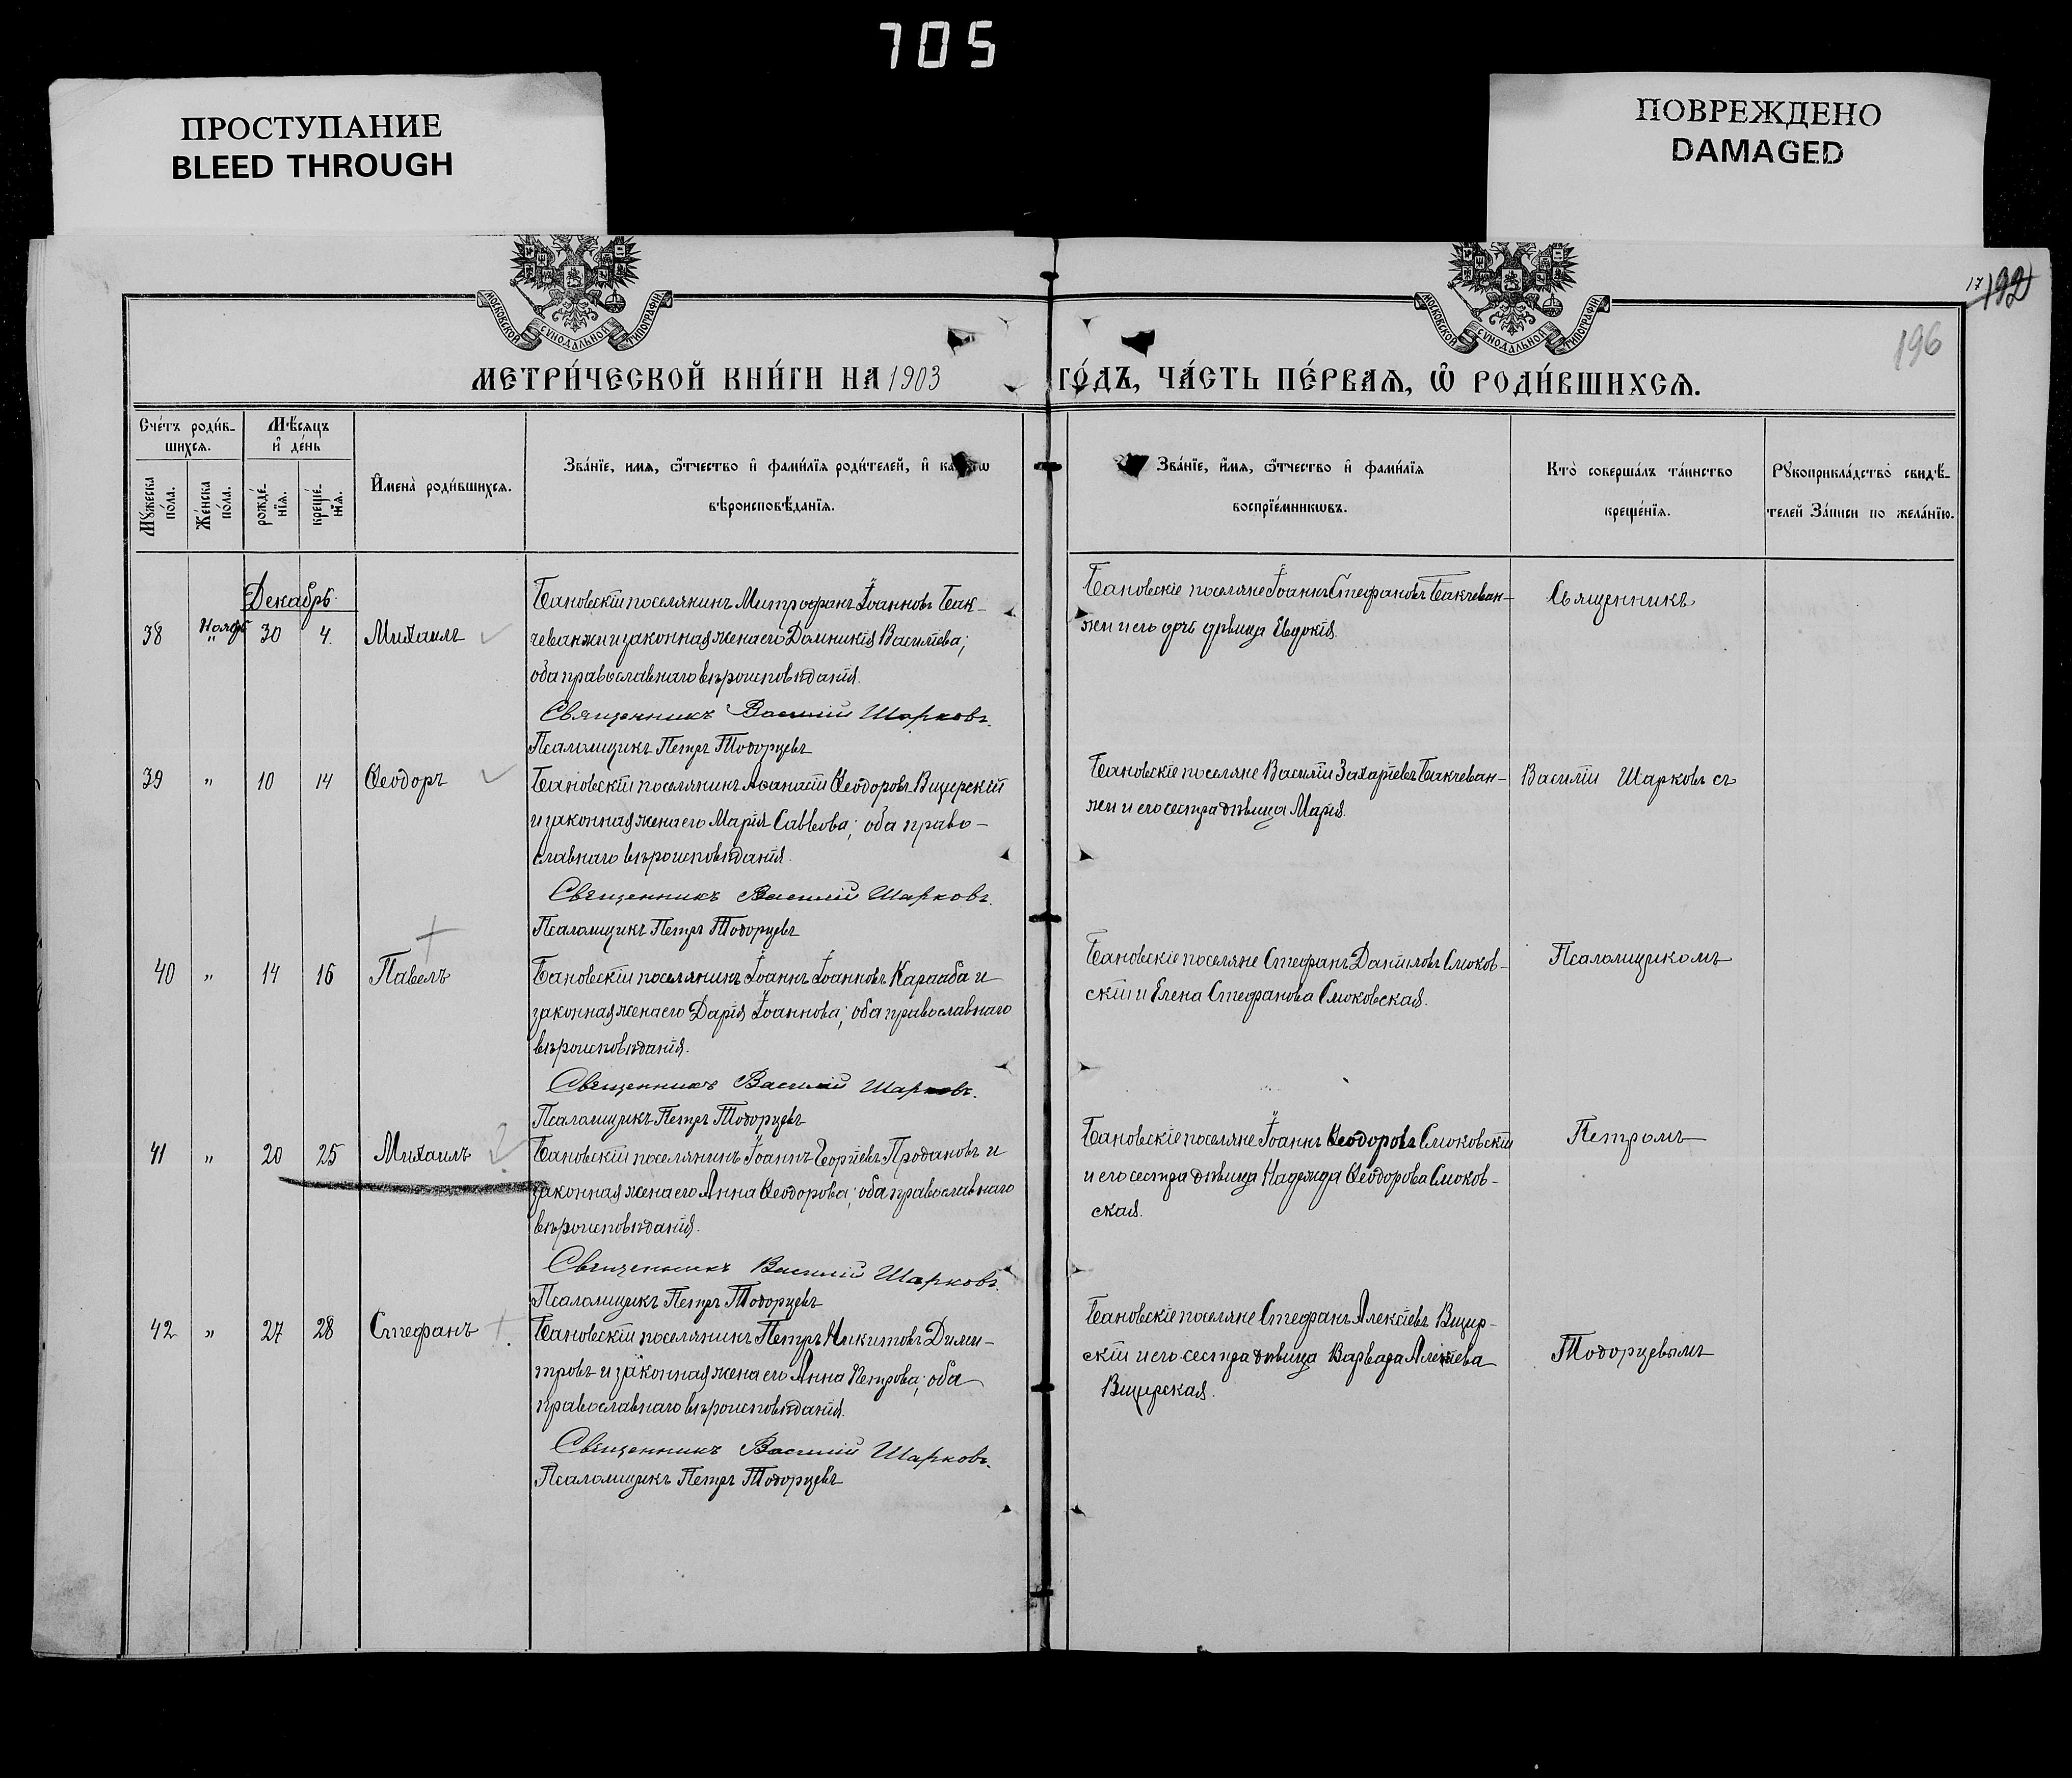 705
ПРОСТУПАНИЕ
BLEED THROUGH
ПОВРЕЖДЕНО
DAMAGED
МОСКОВСКОЙ СѴНОДАЛЬНОЙ ТИПОГРАФІИ
МОСКОВСКОЙ СѴНОДАЛЬНОЙ ТИПОГРАФІИ
17 192
196
МЕТРИ́ЧЕСКОЙ КНИ́ГИ НА 1903 ГО́ДЪ, ЧА́СТЬ ПЕ́РВАѦ, Ѡ РОДИ́ВШИХСѦ.
Сче́тъ роди́в-
шихсѧ.
Мѣ́сѧцъ
и҆ де́нь
Мꙋ́жеска
по́ла.
Же́нска
по́ла.
рожде́-
нїѧ.
креще́-
нїѧ.
И҆мена̀ роди́вшихсѧ.
Зва́нїе, имѧ, ѻ҆́тчество и҆ фами́лїѧ роди́телей, и҆
вѣроисповѣ́данїѧ.
Зва́нїе, и҆́мѧ, ѻ҆́тчество и҆ фами́лїѧ
воспрїе́мникѡвъ.
Кто̀ соверша́лъ та́инство
креще́нїѧ.
Рꙋкоприкла́дство свидѣ́-
телей За́писи по жела́нїю.
Декабрь
38 Ноябр „ 30 4. Михаилъ
Бановскій поселянинъ Митрофанъ Іоанновъ Бак-
чеванжи и законная жена его Домникія Василіева;
оба православнаго вѣроисповѣданія.
Священникъ Василій Шарковъ.
Псаломщикъ Петръ Тодорцевъ
Бановскіе поселяне Іоаннъ Стефановъ Бакчеван-
жи и его дочь дѣвица Евдокія.
Священникъ
39 „ 10 14 Ѳеодоръ
Бановскій поселянинъ Аѳанасій Ѳеодоровъ Вицирскій
и законная жена его Марія Саввова; оба право-
славнаго вѣроисповѣданія.
Священникъ Василій Шарковъ.
Псаломщикъ Петръ Тодорцевъ
Бановскіе поселяне Василій Захаріевъ Бакчеван-
жи и его сестра дѣвица Марія.
Василій Шарковъ съ
40 „ 14 16 Павелъ
Бановскій поселянинъ Іоаннъ Іоанновъ Карааба и
законная жена его Дарія Іоаннова; оба православнаго
вѣроисповѣданія.
Священникъ Василій Шарковъ.
Псаломщикъ Петръ Тодорцевъ
Бановскіе поселяне Стефанъ Даніиловъ Смоков-
скій и Елена Стефанова Смоковская.
Псаломщикомъ
41 „ 20 25 Михаилъ
Бановскій поселянинъ Іоаннъ Георгіевъ Продановъ и
законная жена его Анна Ѳеодорова; оба православнаго
вѣроисповѣданія.
Священникъ Василій Шарковъ.
Псаломщикъ Петръ Тодорцевъ
Бановскіе поселяне Іоаннъ Ѳеодоровъ Смоковскій
и его сестра дѣвица Надежда Ѳеодорова Смоков-
ская.
Петромъ
42 „ 27 28 Стефанъ
Бановскій поселянинъ Петръ Никитовъ Дими-
тровъ и законная жена его Анна Петрова; оба
православнаго вѣроисповѣданія.
Священникъ Василій Шарковъ.
Псаломщикъ Петръ Тодорцевъ
Бановскіе поселяне Стефанъ Алексіевъ Вицир-
скій и его сестра дѣвица Варвара Алексіева
Вицирская.
Тодорцевымъ